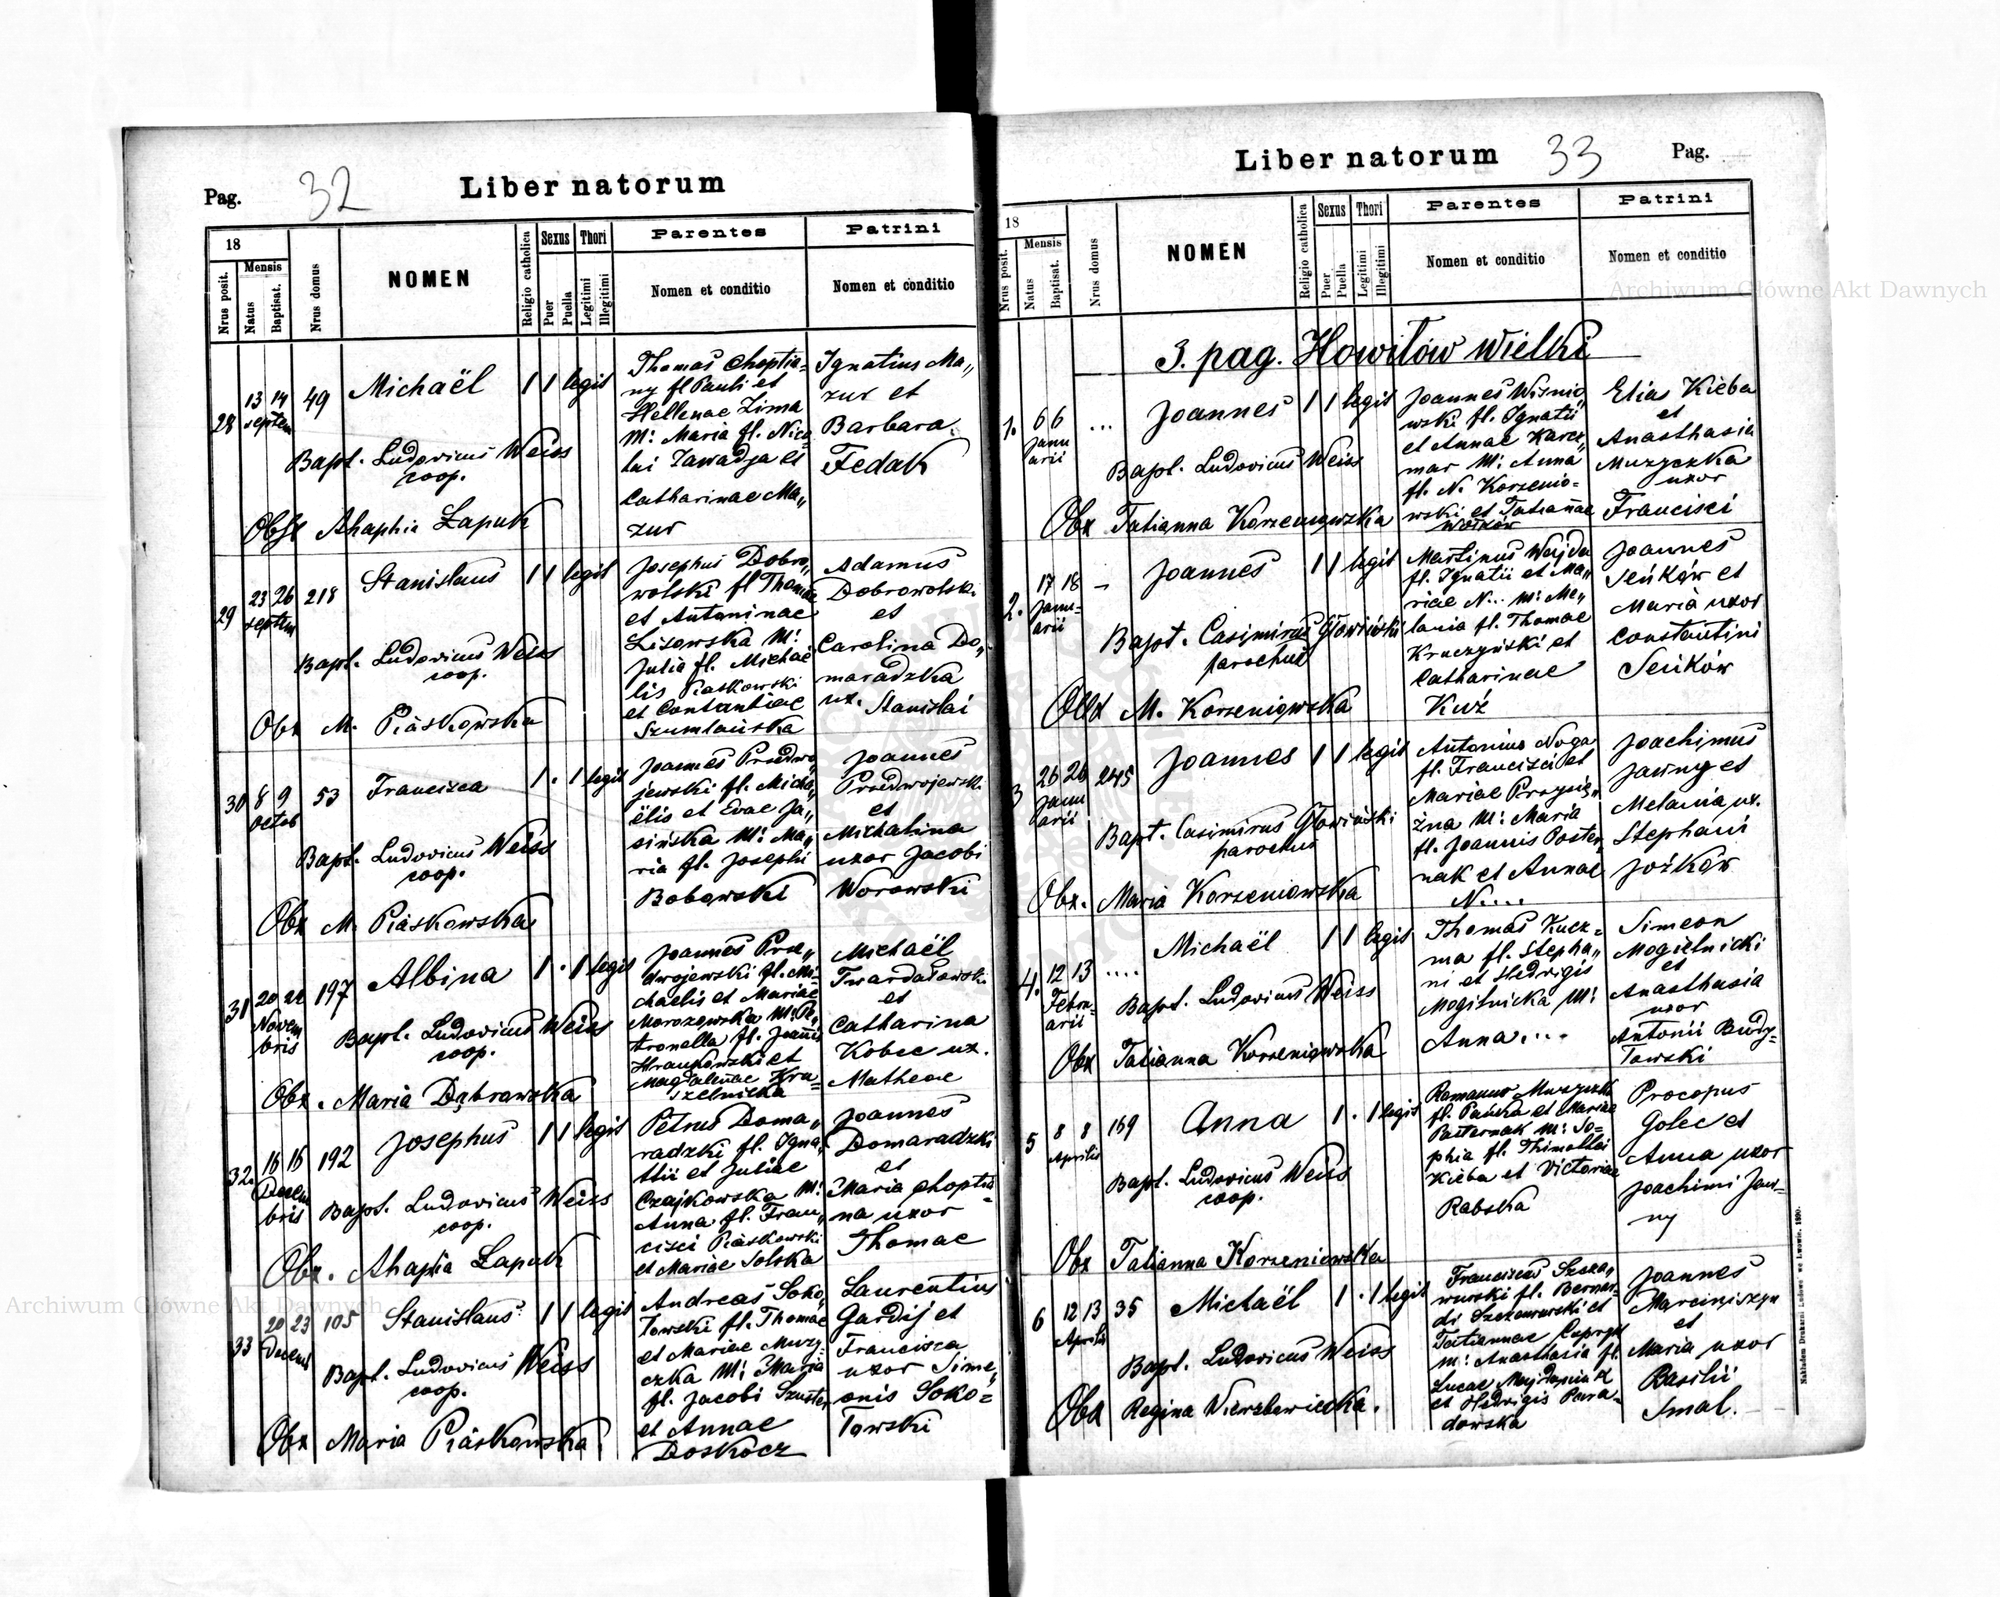 Pag.
32
Liber natorum
18
Mensis
Nrus posit.
Natus
Baptisat.
Nrus domus
NOMEN
Religio catholica
Sexus
Puer
Puella
Thori
Legitimi
Illegitimi
Parentes
Nomen et conditio
Patrini
Nomen et conditio
28
13 14
septem
49
Michaël
1 1 legit
Bapt. Ludovicus Weiss
coop.
Obst Ahaphia Łapuk
Thomas Choptia-
ny fl Pauli et
Hellenae Zima
M: Maria fl. Nico
lai Zawadja et
Catharinae Ma„
zur
Ignatius Ma„
zur et
Barbara
Fedak
29
23 26
septem
218
Stanislaus
1 1 legit
Bapt. Ludovicus Weiss
coop.
Obx M. Piaskowska
Josephus Dobro„
wolski fl Thomae
et Antoninae
Lisowska M:
Julia fl. Michae
lis Piaskowski
et Constantiae
Szumlańska
Adamus
Dobrowolski
et
Carolina Do„
maradzka
ux. Stanislai
30
8 9
octob
53
Francisca
1 . 1 legit
Bapt. Ludovicus Weiss
coop.
Obx M. Piaskowska
Joannes Przedwo„
jewski fl. Micha„
ëlis et Evae Ja„
sińska M: Ma„
ria fl. Josephi
Bobowski
Joannes
Przedwojewski
et
Michalina
uxor Jacobi
Worowski
31
20 22
Novem
bris
197
Albina
1 . 1 legit
Bapt. Ludovicus Weiss
coop.
Obx. Maria Dąbrowska
Joannes Prze„
dwojewski fl. Mi-
chaelis et Mariae
Morozowska M: Pe„
tronella fl. Joannis
et
Magdalenae Kru-
szelnicka
Michaël
Twardałowski
et
Catharina
Kobec ux.
Matheae
32
16 16
Decem
bris
192
Josephus
1 1 legit
Bapt. Ludovicus Weiss
coop.
Obx. Ahaphia Łapuk
Petrus Doma„
radzki fl. Igna
tii et Juliae
Czajkowska M:
Anna fl. Fran„
cisci Piaskowski
et Mariae Solska
Joannes
Domaradzki
et
Maria Choptia-
na uxor
Thomae
33
20 23
Decem
105
Stanislaus
1 1 legit
Bapt. Ludovicus Weiss
coop.
Obx Maria Piaskowska
Andreas Soko„
łowski fl. Thomae
et Mariae Muzy„
czka M: Maria
fl. Jacobi Szuster
et Annae
Doskocz
Laurentius
Gardij et
Francisca
uxor Sime„
onis Soko-
łowski
Liber natorum
33
Pag.
18
Mensis
Nrus posit.
Natus
Baptisat.
Nrus domus
NOMEN
Religio catholica
Sexus
Puer
Puella
Thori
Legitimi
Illegitimi
Parentes
Nomen et conditio
Patrini
Nomen et conditio
3. pag. Howiłów Wielki
1.
6 6
Janu
arii
...
Joannes
1 1 legit
Bapt. Ludovicus Weiss
Obx Tatianna Korzeniowska
Joannes Wiśnio„
wski fl. Ignatii
et Annae Karcz„
mar M: Anna
fl. N. Korzenio-
wski et Tatiannae
Wołków
Elias Kieba
et
Anasthasia
Muzyczka
uxor
Francisci
2.
17 18
Janu-
arii
-
Joannes
1 1 legit
Bapt. Casimirus Głowiński
parochus
Obx M. Korzeniowska
Martinus Wajda
fl. Ignatii et Ma„
riae N... M: Me„
lania fl. Thomae
Kruczyński et
Catharinae
Kuź
Joannes
Seńków et
Maria uxor
Constantini
Seńków
3
26 26
Janu
arii
245
Joannes
1 1 legit
Bapt. Casimirus Głowiński
parochus
Obx. Maria Korzeniowska
Antonius Noga
fl. Francisci et
Mariae
M: Maria
fl. Joannis Paster„
nak et Annae
N....
Joachimus
Jawny et
Melania ux.
Stephani
Jożków
4.
12 13
Febru-
arii
....
Michaël
1 1 legit
Bapt. Ludovicus Weiss
Obx Tatianna Korzeniowska
Thomas Kucz-
ma fl. Stepha„
ni et Hedvigis
Mogilnicka M:
Anna....
Simeon
Mogielnicki
et
Anasthasia
uxor
Antonii Budy-
łowski
5
8 8
Aprilis
169
Anna
1 . 1 legit
Bapt. Ludovicus Weiss
coop.
Obx Tatianna Korzeniowska
Romanus Muzyczka
fl. Pańka et Mariae
Pasternak M: So-
phia fl. Thimothei
Kieba et Victoriae
Rabska
Procopus
Golec et
Anna uxor
Joachimi Jaw-
ny
6
12 13
Aprilis
35
Michaël
1 . 1 legit
Bapt. Ludovicus Weiss
Obx Regina Wierzbwiecka.
Franciscus Szcza„
wurski fl. Bernar-
di Szczawurski et
Tatiannae Cupryk
M: Anasthasia fl.
Lucae
et Hedvigis Para-
dowska
Joannes
Marciniszyn
et
Maria uxor
Basilii
Smal.
Nakładem Drukarni Ludowej we Lwowie. 1890.
Archiwum Główne Akt Dawnych
Archiwum Główne Akt Dawnych